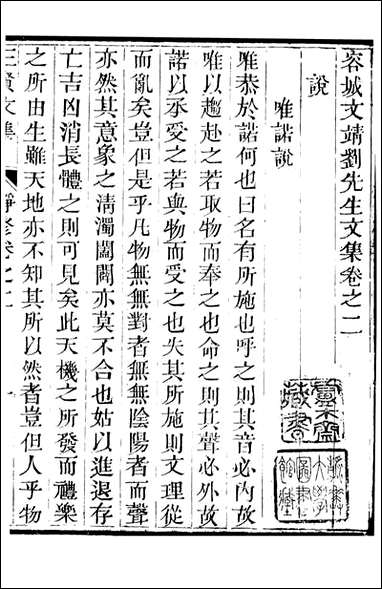 容城文靖劉先生文集卷之二
說
唯諾說
唯恭於諾何也曰名有所施也呼之則其音必內故
唯以趨赴之若取物而奉之也命之則其聲必外故
諾以承受之若與物而受之也失其所施則文理從
而亂矣豈但是乎凡物無無對者無無陰陽者而聲
亦然其意象之清濁闔闢亦莫不合也姑以進退存
亡吉凶消長體之則可見矣此天機之所發而禮樂
之所由生雖天地亦不知其所以然者豈但人乎物
三賢文集
靜修卷之二
藏書
大學
圖書
館藏